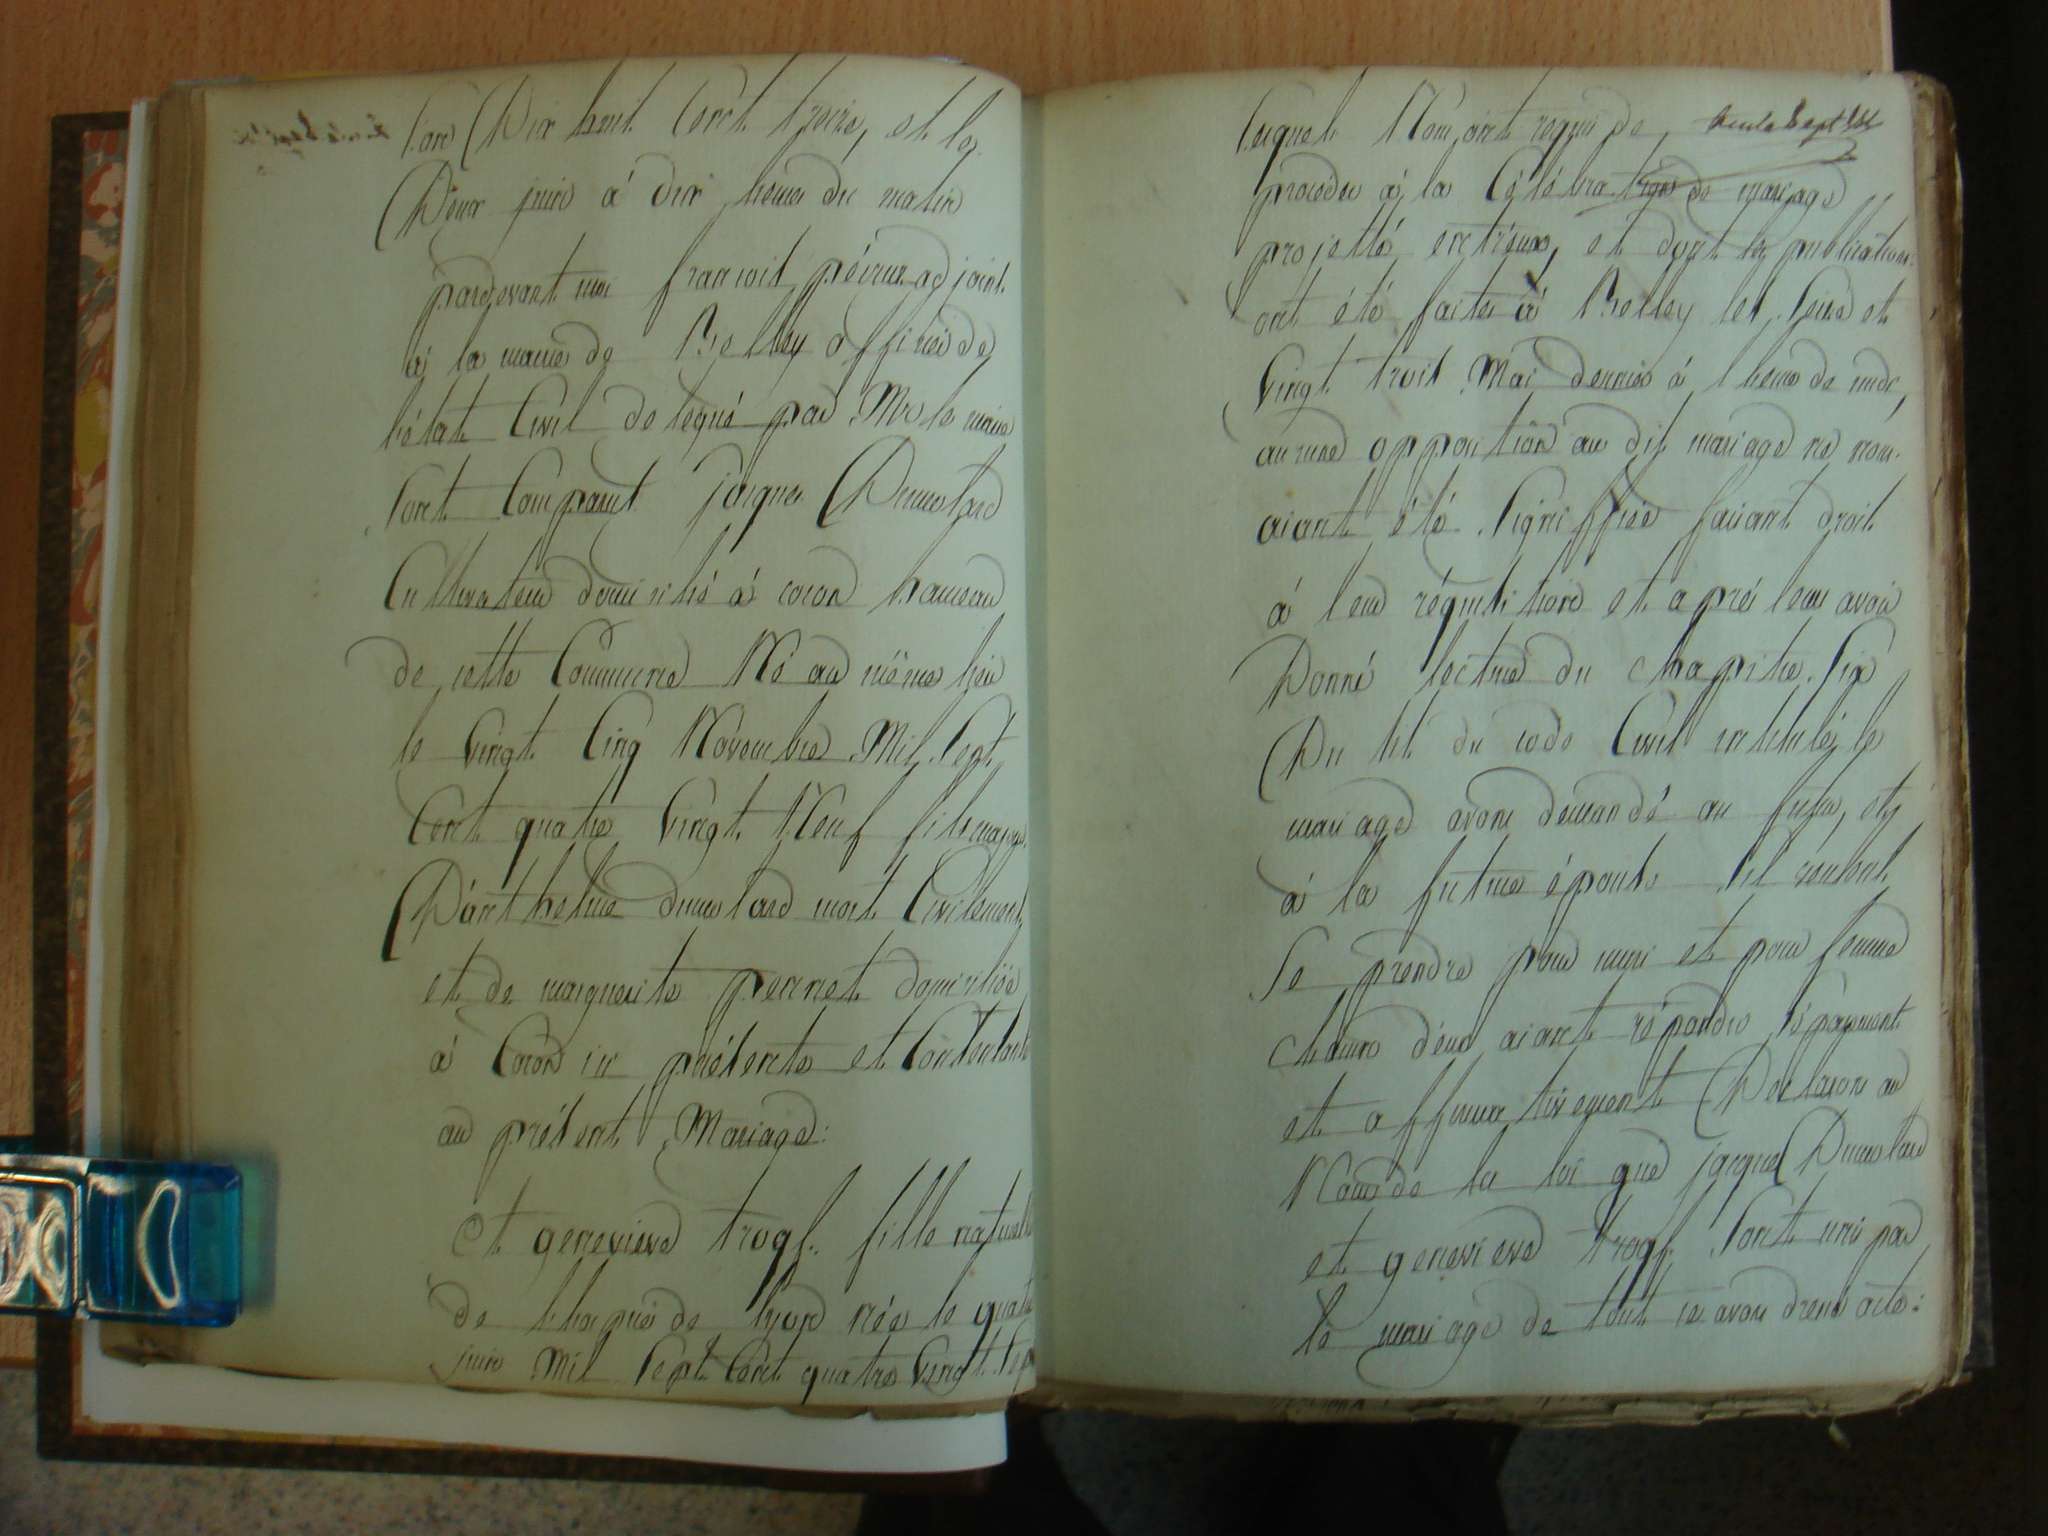 L'an Dix huit Cent treize, et le
Deux juin à dix heures du matin
pardevant moi françois péuvrez adjoint
à la mairie de Belley officier de
l'état Civil delegué par Mr le maire
sont Comparut jacques Dumolard
Cultivateur domicilié à coron hameau
de cette Commune Né au même lieu
le vingt Cinq Novembre Mil Sept
Cent quatre vingt Neuf fils majeur
D'anthelme dumolard mort Civilement
et de marguerite pernet domiciliée
à Coron ici présente et Consentante
au présent Mariage:
Et genevieve trogf. fille naturelle
de l'hospice de lyon née le quatre
juin Mil Sept Cent quatre vingt Sept
Lesquels Nous ont requis de
procéder à la Célébration de mariage
projetté entr'eux, et dont les publications
ont été faites à Belley les Seize et
vingt trois Mai dernier à l'heure de midi,
aucune opposition au dit mariage ne nous
aiant été Signiffiée faisant droit
à leur réquisition et après leur avoir
Donné lecture du chapitre Six
Du tit. du code Civil intitulé le
mariage avons demandé au futur, et
à la future épouse s'il veulent
Se prendre pour mari et pour femme
chacun d'eux aiant répondu séparement
et affirmativement Declarons au
Nom de la loi que jacques Dumolard
et genevieve trogf. Sont unis par
le mariage de tout ce avons dressé acte: